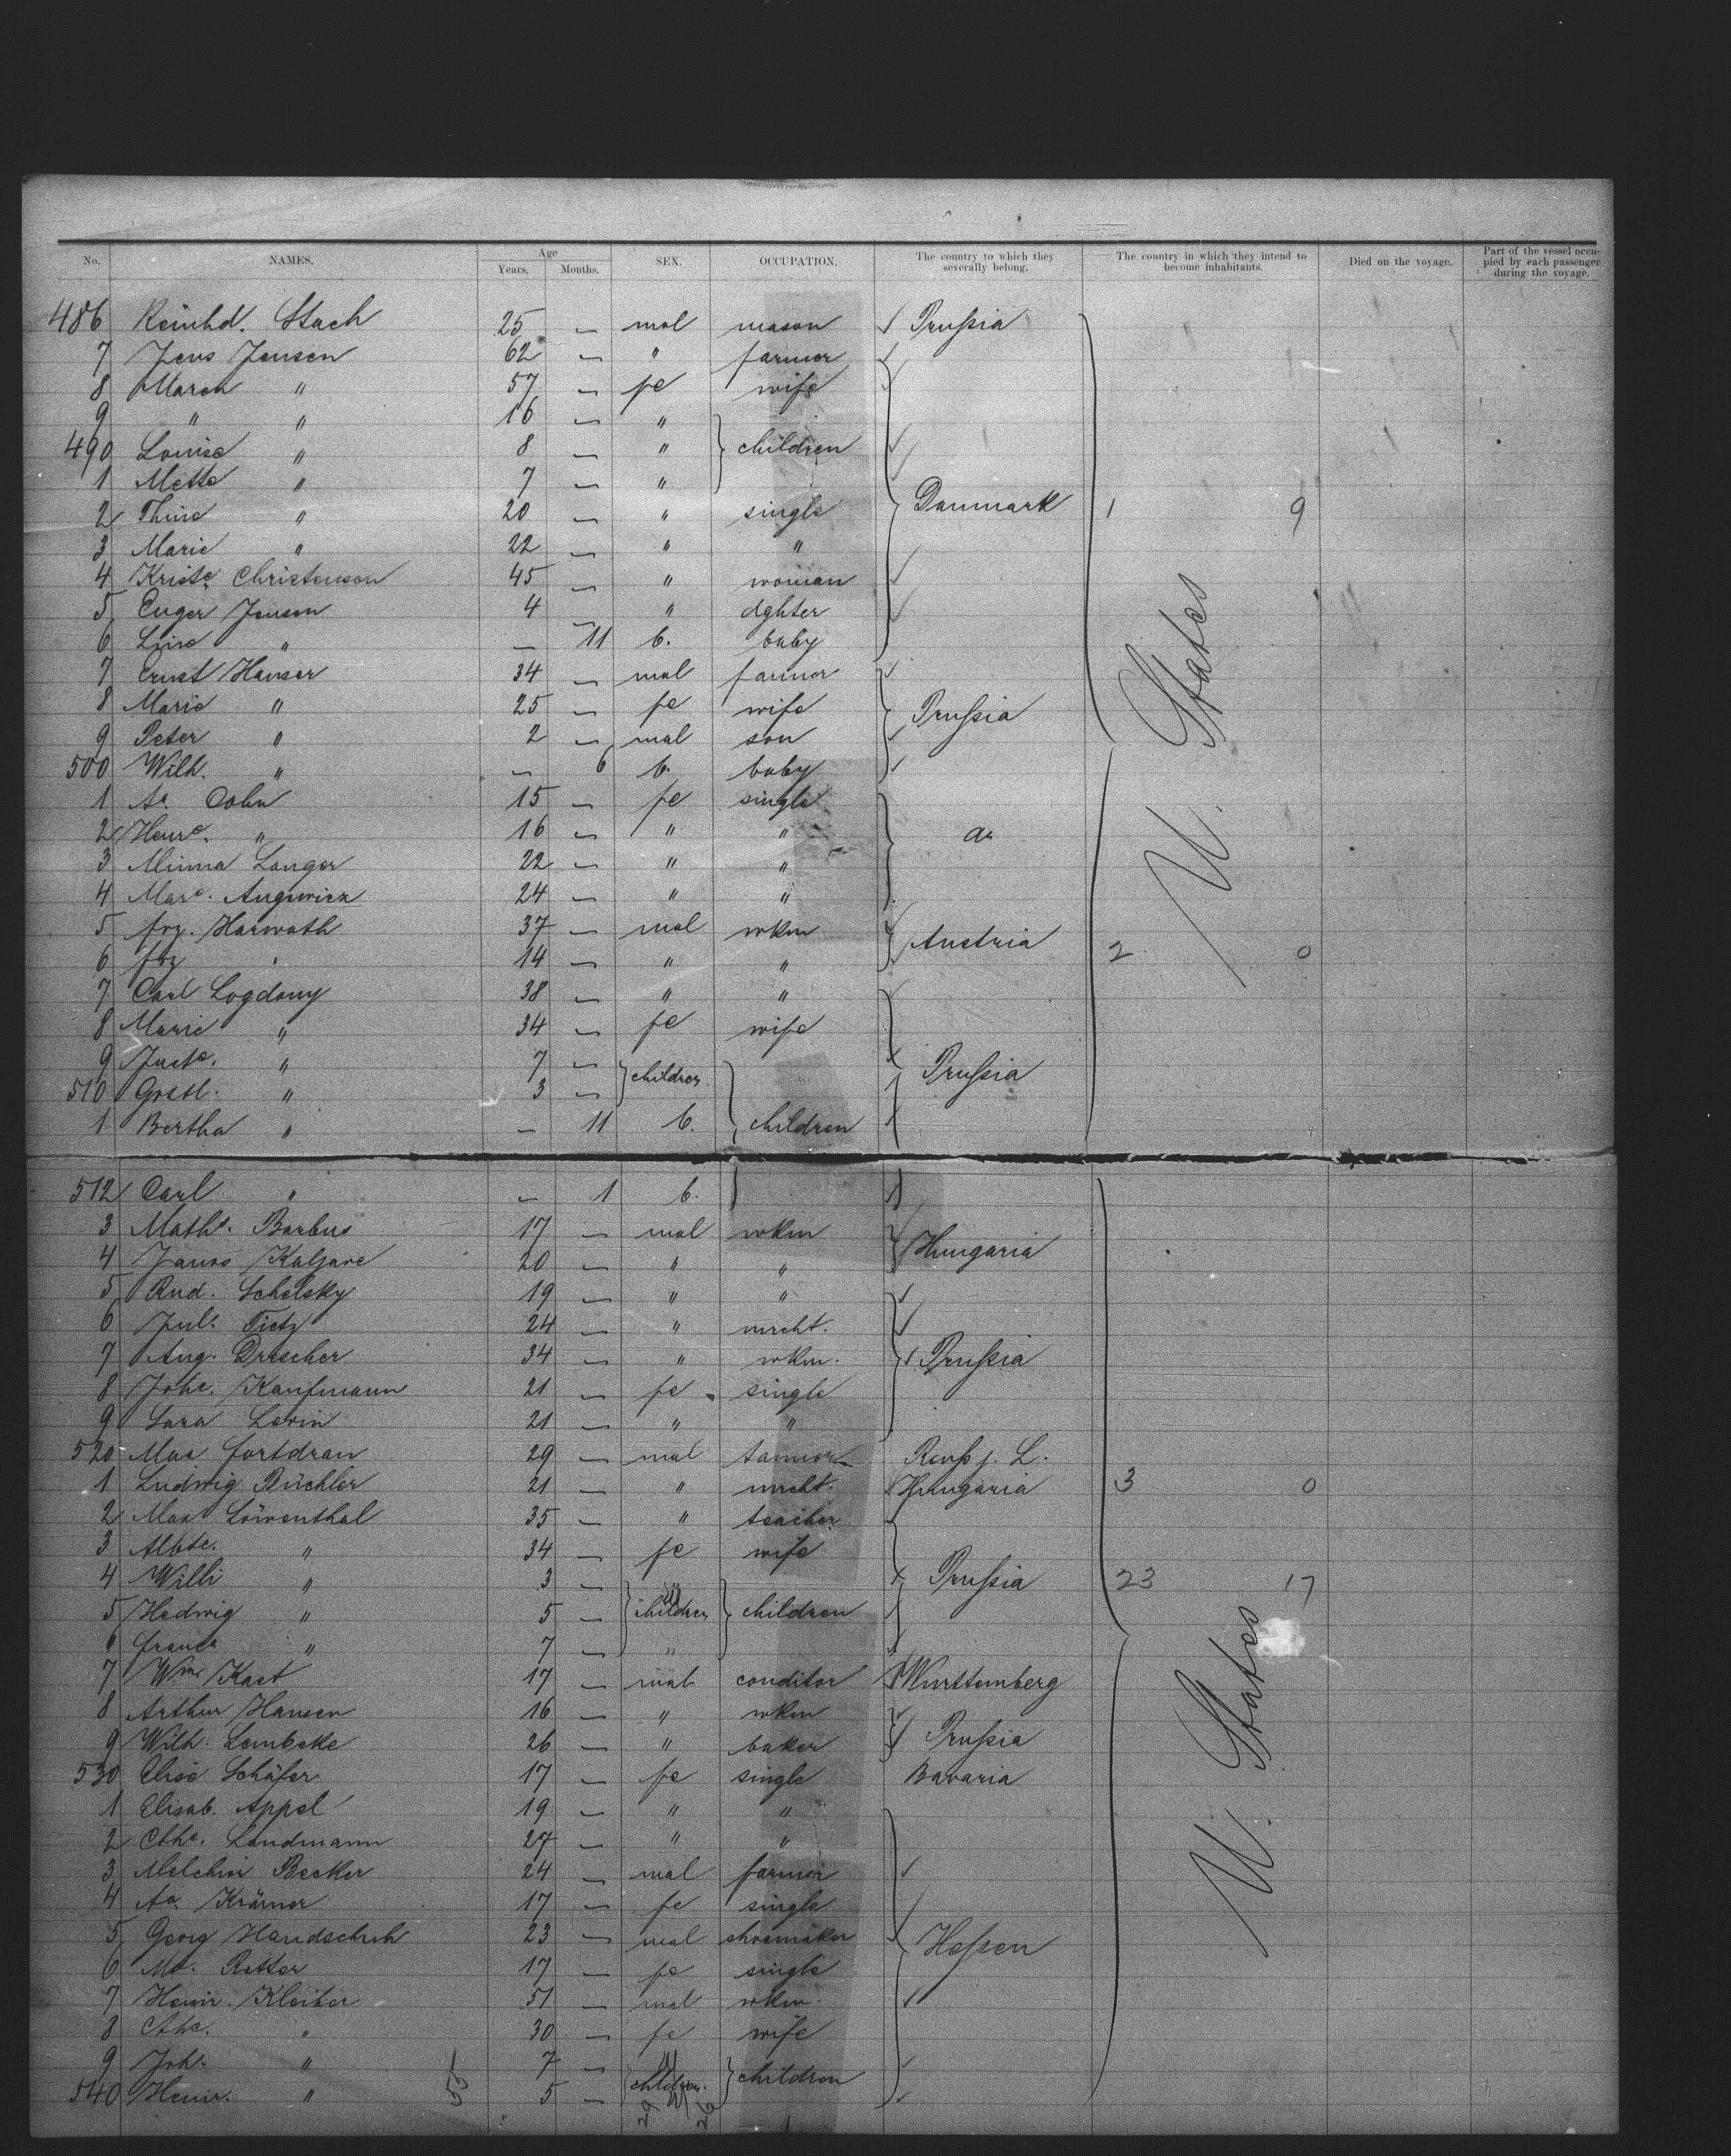 No. NAMES. Age Years. Months. SEX. OCCUPATION. The country to which they severally belong. The country in which they intend to become inhabitants. Died on the voyage. Part of the vessel occupied by each passenger during the voyage.
486 Reinhd. Stach 25 — mal mason Prußia
7 Jens Jensen 62 — " farmer
8 Maren " 57 — fe wife
9 " " 16 — "
490 Louise " 8 — " children
1 Mette " 7 — "
2 Thine " 20 — " single Danmark 1 9
3 Marie " 22 — " "
4 Kriste. Christensen 45 — " woman
5 Enger Jensen 4 — " dghter
6 Line " — 11 b. baby
7 Ernst Hanser 34 — mal farmer
8 Marie " 25 — fe wife Prußia
9 Peter " 2 — mal son
500 Wilh. " — 6 b. baby
1 Ae. Cohn 15 — fe single
2 Henre. " 16 — " "
3 Minna Langer 22 — " "
4 Mare. 24 — " "
5 frz. Harwath 37 — mal wkm Austria 2 0
6 frz " 14 — " "
7 Carl Logdany 38 — " "
8 Marie " 34 — fe wife
9 Juste. " 7 — children Prußia
510 Gretl. " 3 —
1 Bertha " — 11 b. children
U. States
512 Carl " — 1 b.
3 Maths. Barbus 17 — mal wkm Hungaria
4 Janos 20 — " "
5 Rud. Schelsky 19 — " "
6 Juls. Tietz 24 — " mrcht.
7 Aug. Drescher 34 — " wkm. Prußia
8 Johe. Kaufmann 21 — fe single
9 Sara Levin 21 — " "
520 Max Fortdran 29 — mal tanner Reuß j. L.
1 Ludwig Büchler 21 — " mrcht. Hungaria 3 0
2 Max Löwenthal 35 — " teacher
3 Albte. " 34 — fe wife
4 Willi " 3 — Prußia 23 17
5 Hedwig " 5 — children children
6 " 7 — "
7 Wm Kast 17 — mal conditor Württemberg
8 Arthur Hansen 16 — " wkm
9 Wilh. Lembcke 26 — " baker Prußia
530 Elise Schäfer 17 — fe single Bavaria
1 Elisab. Appel 19 — " "
2 Cthe. Landmann 27 — " "
3 Melchior Becker 24 — mal farmer
4 Ae. Krämer 17 — fe single
5 Georg Handschuh 23 — mal shoemaker Heßen
6 Me. Retter 17 — fe single
7 Heinr. Kleiber 51 — mal wkm.
8 Cthe. " 30 — fe wife
9 Joh. " 7 — children children
540 Heinr. " 55 5 —
29 26
U. States